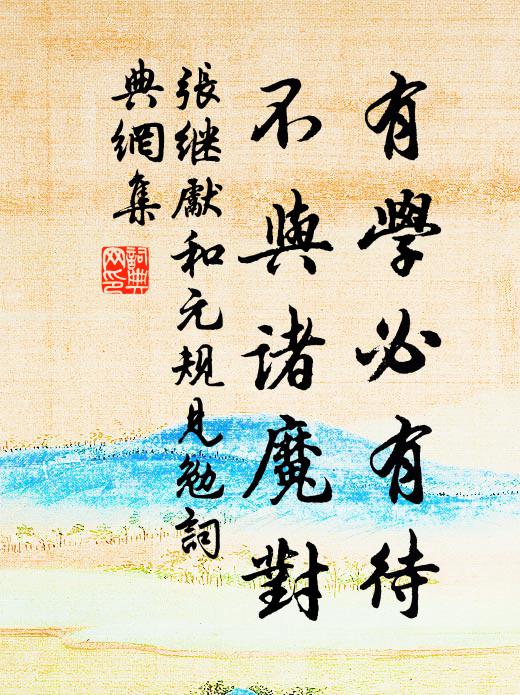 有學必有待
不與諸魔對
張继獻和元規見勉詞
典網集
詞典網印